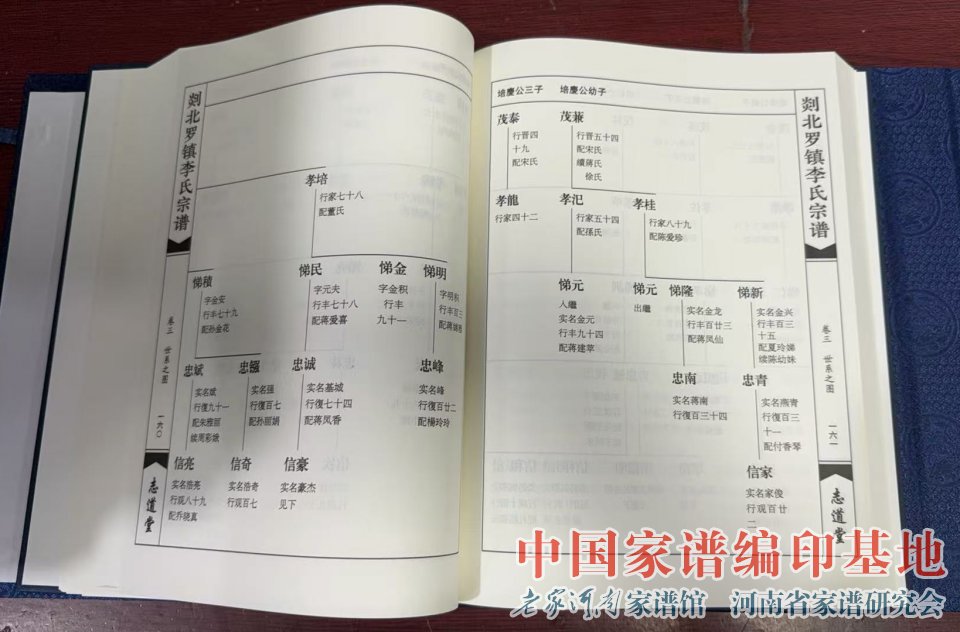 剡北罗镇李氏宗谱
卷三 世系之图
一六〇
志道堂
孝培
行家七十八
配董氏
悌積
字金安
行丰七十九
配孙金花
悌民
字元夫
行丰七十八
配蒋爱喜
悌金
字金积
行丰
九十一
悌明
字明积
行丰百三
忠斌
实名斌
行復九十一
配朱雅丽
续周彩娥
忠鏹
实名强
行復百七
配孙丽娟
忠诚
实名基城
行復七十四
配蒋凤香
忠峰
实名峰
行復百廿二
配楊玲玲
信亮
实名浩亮
行观八十九
配乔晓真
信奇
实名浩奇
行观百七
信豪
实名豪杰
见下
培慶公三子
培慶公幼子
茂泰
行晋四
十九
配宋氏
茂蒹
行晋五十四
配宋氏
續蒋氏
徐氏
孝龍
行家四十二
孝汜
行家五十四
配孫氏
孝桂
行家八十九
配陈爱珍
悌元
入繼
实名金元
行丰九十四
配蒋建苹
悌元
出繼
悌隆
实名金龙
行丰百廿三
配蒋凤仙
悌新
实名金兴
行丰百三
十五
配夏玲娣
续陈幼妹
忠南
实名蒋南
行復百三十四
忠青
实名燕青
行復百三
十一
配付香琴
信家
实名家俊
行观百廿
二
剡北罗镇李氏宗谱
卷三 世系之图
一六一
志道堂
中国家谱编印基地
老家河南家谱馆 河南省家谱研究会